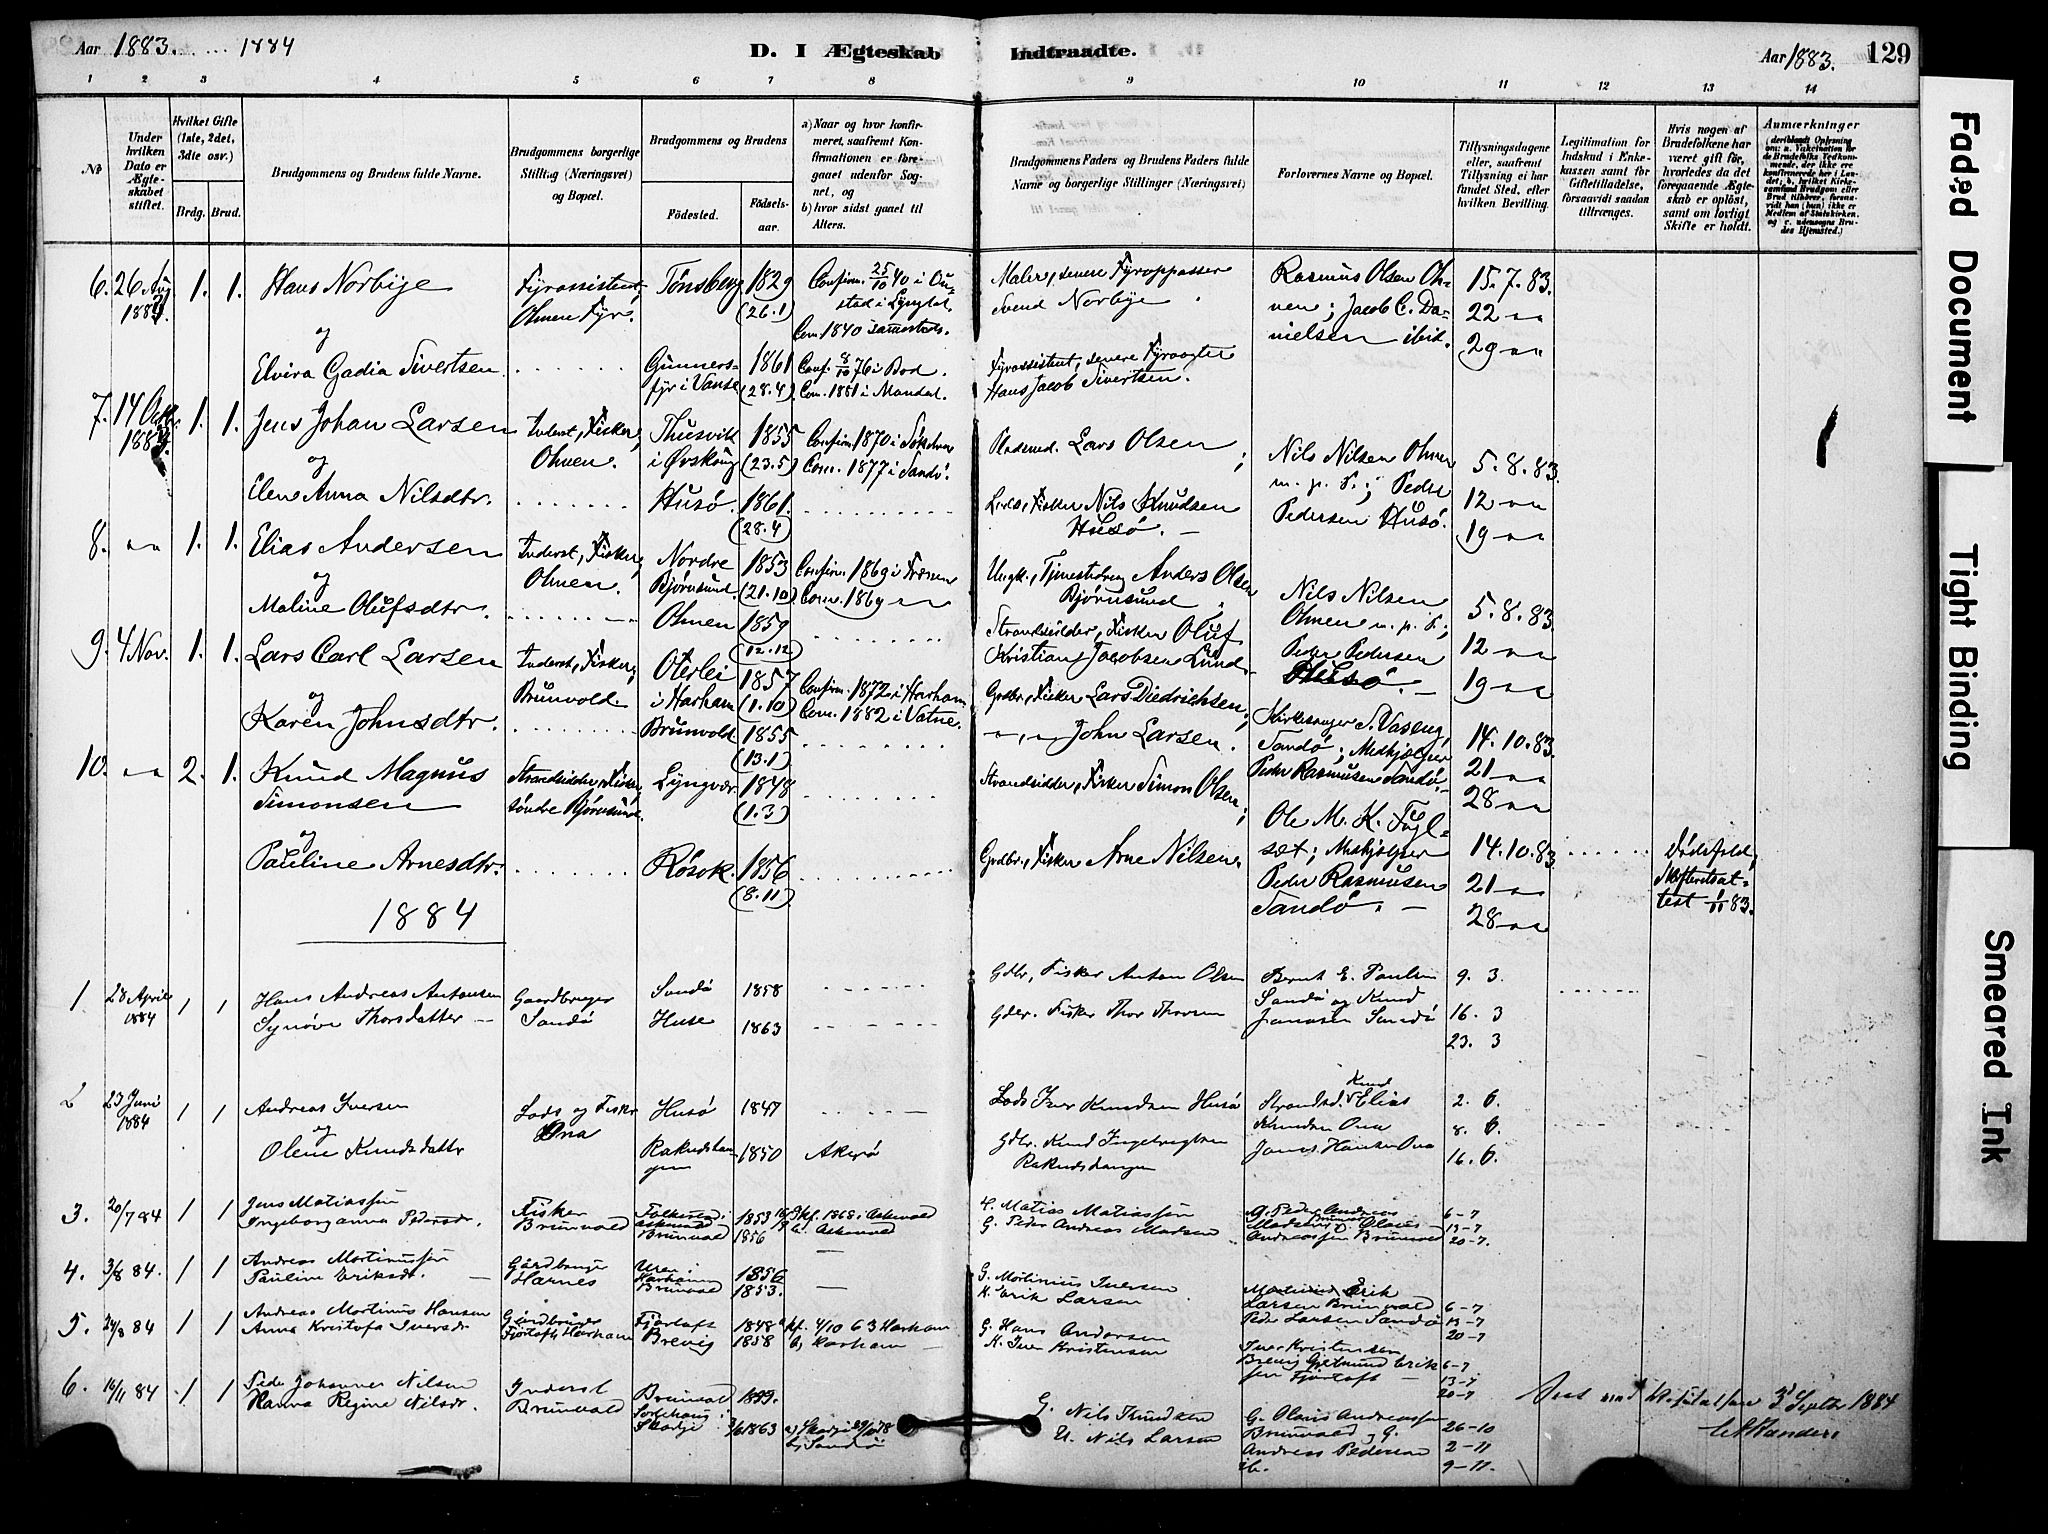 Aar 1883. ... 1884
D. I Ægteskab Indtraadte.
Aar 1883. 129
1 2 3 4 5 6 7 8 9 10 11 12 13 14
No
Under hvilken Dato er Ægteskabet stiftet.
Hvilket Gifte (1ste, 2det, 3die osv.)
Brdg. Brud.
Brudgommens og Brudens fulde Navne.
Brudgommens borgerlige Stilling (Næringsvei) og Bopæl.
Brudgommens og Brudens
Födested. Födselsaar.
a) Naar og hvor konfirmeret, saafremt Konfirmationen er foregaaet udenfor Sognet, og
b) hvor sidst gaaet til Alters.
Brudgommens Faders og Brudens Faders fulde Navne og borgerlige Stillinger (Næringsvei)
Forlovernes Navne og Bopæl.
Tillysningsdagene eller, saafremt Tillysning ei har fundet Sted, efter hvilken Bevilling.
Legitimation for Indskud i Enkekassen samt for Giftetilladelse, forsaavidt saadan tiltrænges.
Hvis nogen af Brudefolkene har været gift før, hvorledes da det foregaaende Ægteskab er oplöst, samt om lovligt Skifte er holdt.
Anmærkninger
6. 26 Aug 1883 1. 1. Hans Norbye Fyrassistent, Ohnen Fyr. Tönsberg 1829 (26.1) Confirm. 25/10 40 i
Com. 1840 samesteds. Maler, senere Fyropasser Svend Norbye Rasmus Olsen Ohnen; Jacob C. Danielsen ibid. 15.7.83. 22 29
og
Elvira Gadia Sivertsen Gunnersfyr i Vanse 1861 (28.4) Conf. 8/10 76 i Bod. Com. 1881 i Mandal. Fyrassistent, senere Fyrvogter Hans Jacob Sivertsen.
7. 14 Octb. 1883. 1. 1. Jens Johan Larsen Inderst, Fisker, Ohnen. Thusvik i Ørskoug 1855 (23.5) Confirm. 1870 i Com. 1877 i Sandö. Pladsmd. Lars Olsen; Nils Nilsen Ohnen m. p. P.; Peder Pedersen Husö. 5.8.83. 12 19
og
Elen Anna Nilsdtr. Husö. 1861. (28.4) Lods, Fisker Nils Knudsen Husö.
8. 1. 1. Elias Andersen Inderst, Fisker, Ohnen. Nordre Björnsund. 1853 (21.10) Confirm. 1869 i Frænen Com. 1869 Ungk., Tjenestedreng Anders Olsen Björnsund; Nils Nilsen Ohnen m. p. P.; Peder Pedersen Husö. 5.8.83 12 19
og
Maline Olufsdtr. Ohnen 1859 (12.12) Strandsidder, Fisker Oluf Kristian Jacobsen Lund
9. 4 Nov. 1. 1. Lars Carl Larsen Inderst, Fisker, Brunvold. Oterlei i Harham 1857 (1.10) Confirm. 1872 i Harham Com. 1882 i Vatne. Grdbr., Fisker Lars Diedrichsen; Kirkesanger S. Vaseng, Sandö; Medhjælper Peder Rasmusen Sandö. 14.10.83. 21 28
og
Karen Johnsdtr. Brunvold. 1855 (13.1) John Larsen.
10. 2. 1. Knud Magnus Simonsen Strandsidder, Fisker, söndre Björnsund. Lyngvær 1848 (1.3) Strandsidder, Fisker Simon Olsen; Ole M. K. Fuglset; Medhjælper Peder Rasmusen Sandö. 14.10.83. 21 28
og
Pauline Arnesdtr. Rösok. 1856 (8.11) Grdbr., Fisker Arne Nilsen. Dödsfald, Skifteretsattest 1/11 83.
1884
1 28 April 1884 1 1 Hans Andreas Antonsen Gaardbruger Sandö Sandö 1858 Gdbr, Fisker Anton Olsen Bernt E. Paulsen Sandö og Knud Jonasen Sandö 9. 3
Synöve Thorsdatter Huse 1863 Gdbr. Fisker Thor Thorsen 16. 3
23. 3
2 23 Juni 1884 1 1 Andreas Iversen Lods og Fisker Ona Husö 1847 Lods Iver Knudsen Husö Strandsd. Knud Elias Knudsen Ona 2. 6.
og
Olene Knudsdatter 1850 Akerö Gdbr. Knud Ingebrigtsen Jonas Hansen Ona 8. 6.
16. 6.
3. 20/7 84 1 1 Jens Matiassen Fisker Brunvold 1853 kf. 1868 i Askevold H. Matias Matiassen G. Peder Andreas Madsen Brunvold. Olaus Andreassen Brunvold 6-7
Ingeborganna Pedersdr. Brunvold 1856 b. Askevold G. Peder Andreas Madsen 13-7
20-7.
4. 3/8 84. 1 1 Andreas Martinussen Gårdbruger Harnes Uren i Harham 1856 G. Martinius Iversen Erik Larsen Brunvold 6-7
Pauline Eriksdr. Brunvold 1853. H. Erik Larsen Peder Larsen Sandö 13-7
20-7
5. 24/8 84 1 1 Andreas Martinus Hansen Gårdbruger Fjörtoft, Harham Fjörtoft 1848 kf. 4/10 63 Harham G. Hans Andersen Iver Kristensen Brevig 6-7
Anna Kristofa Iversdr Brevig 1858 b, Harham H. Iver Kristensen Eriksen Fjörtoft 13-7
20-7
6. 16/11 84 1 1 Peder Johannes Nilsen Inderst Brunvold Brunvold 1859. G. Nils Knudsen G. Olaus Andreassen Brunvold og G. 26-10
Hanna Regine Nilsdr. Skodje 1863 a, Skodje 29/9 78 b, Sandö U. Nils Larsen Andreas Pedersen ib. 2-11
9-11.
Seet ved Visitatsen 3d Septbr 1884
Faded Document
Tight Binding
Smeared Ink